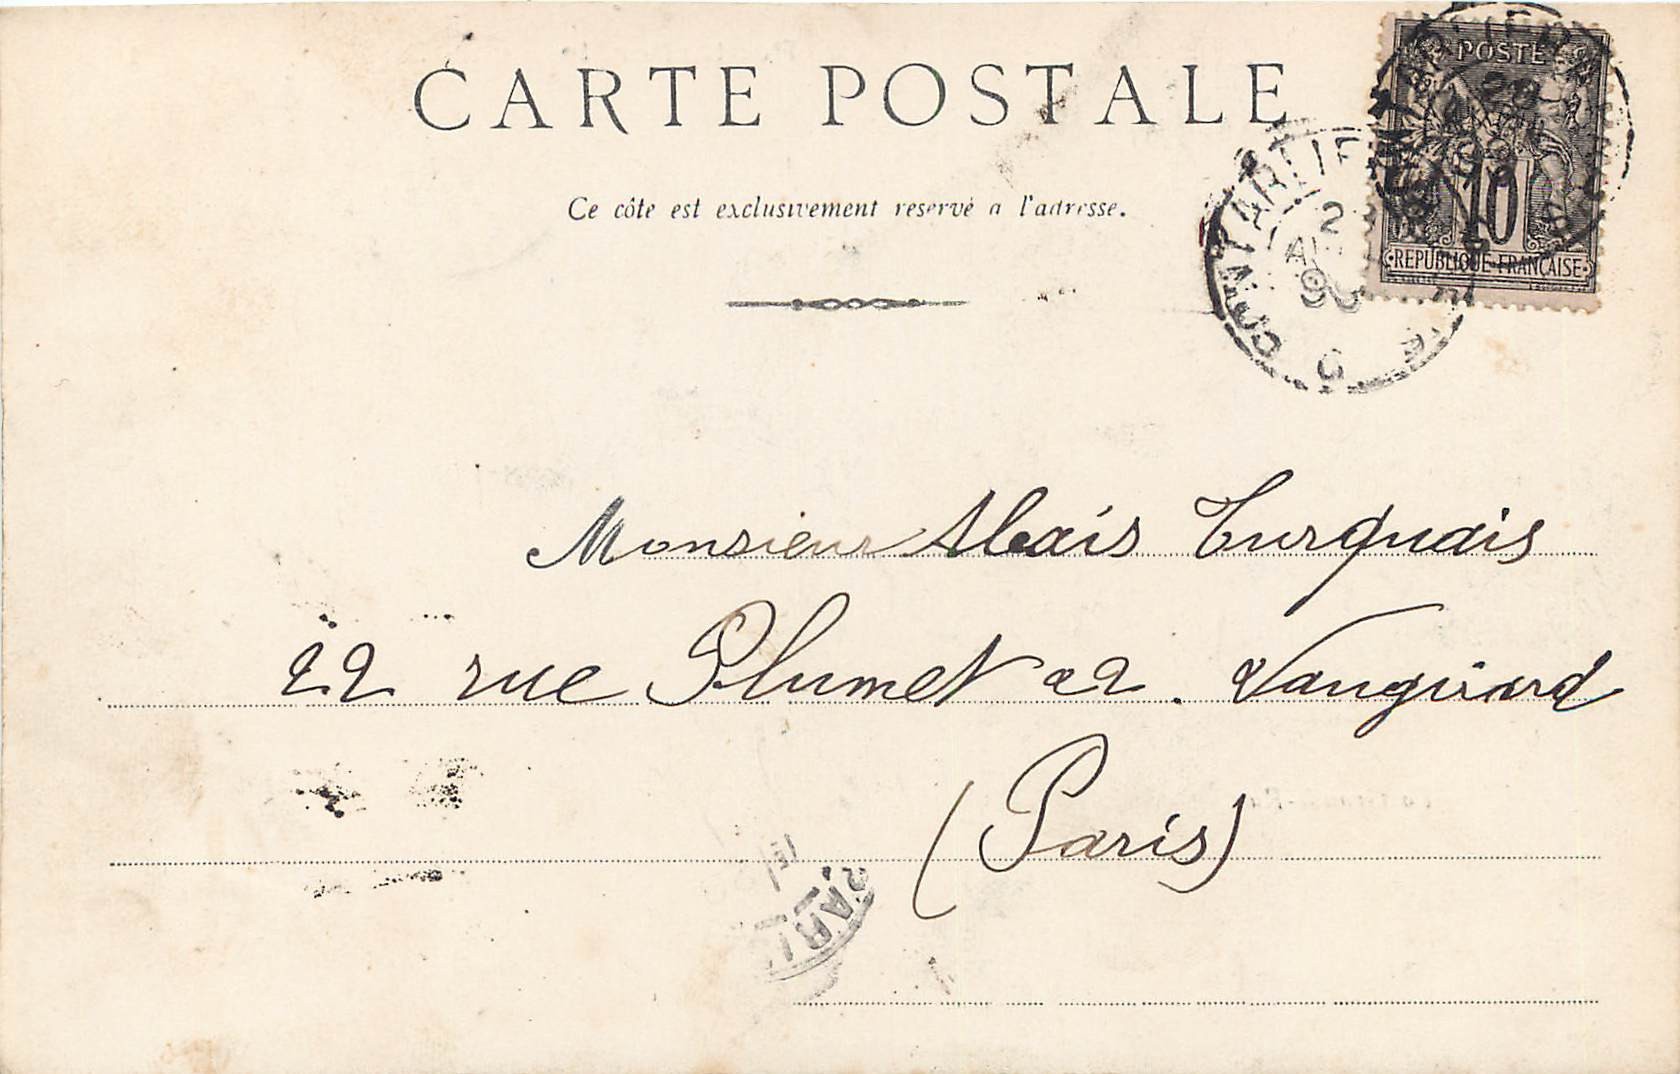 CARTE POSTALE
Ce côte est exclusivement reservé a l'adresse.
POSTE
10
REPUBLIQUE FRANÇAISE
Monsieur Alexis Turquais
22 rue Plumet 22. Vaugirard
(Paris)
PARI